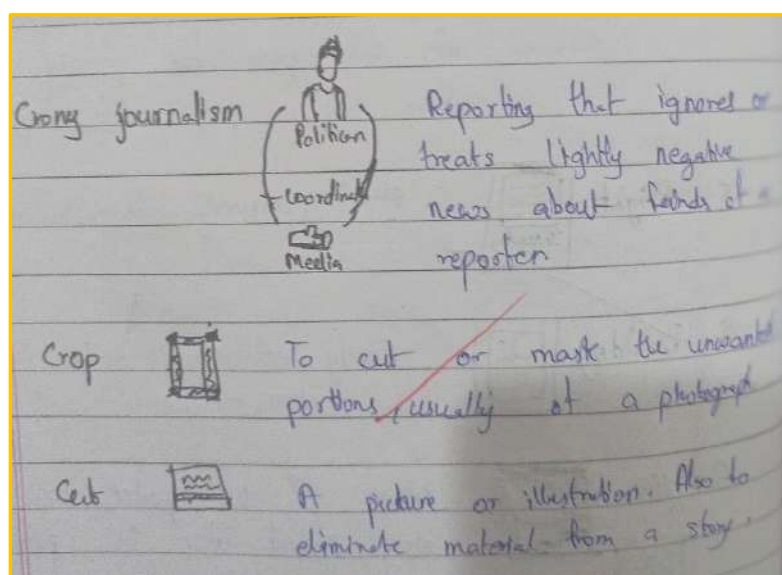 Crony journalism
Politician
Coordinate
Media
Reporting that ignores or
treats lightly negative
news about friends of a
reporter
Crop
To cut or mask the unwanted
portions, usually of a photograph
Cut
A picture or illustration. Also to
eliminate material from a story.